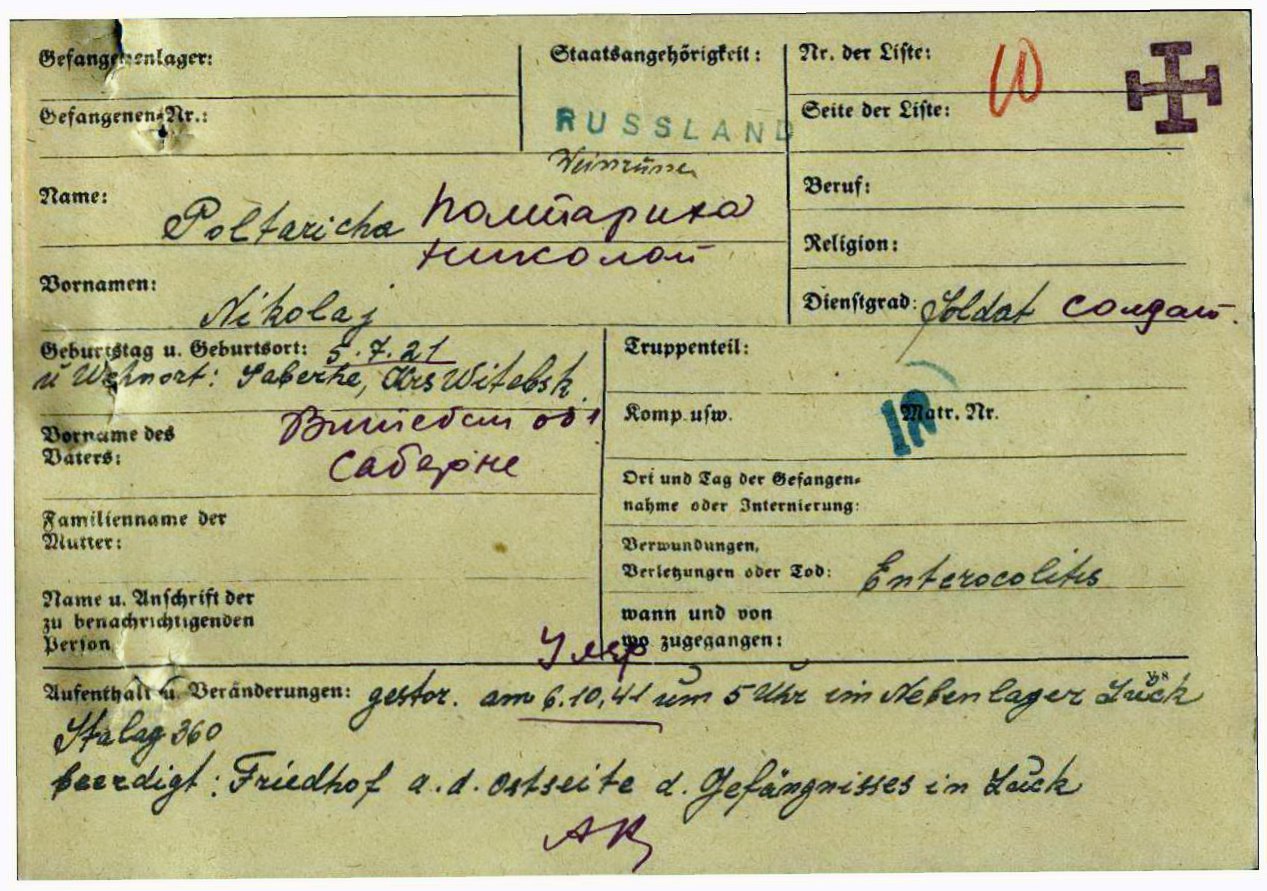 Gefangenenlager:
Gefangenen-Nr.:
Staatsangehörigkeit:
RUSSLAND
Nr. der Liste:
Seite der Liste:
Name: Poltaricha Полтариха
Николай
Vornamen: Nikolaj
Beruf:
Religion:
Dienstgrad: Soldat солдат.
Geburtstag u. Geburtsort: 5.7.21
u Wohnort: Saberke, Krs Witebsk.
Витебск обл
Vorname des
Vaters:
Familienname der
Mutter:
Name u. Anschrift der
zu benachrichtigenden
Person
Truppenteil:
Komp. usw.
Matr. Nr.
Ort und Tag der Gefangen-
nahme oder Internierung:
Verwundungen,
Verletzungen oder Tod: Enterocolitis
wann und von
wo zugegangen:
Умер
Aufenthalt u. Veränderungen: gestor. am 6.10.41 um 5 Uhr im Nebenlager Luck
Stalag 360
beerdigt: Friedhof a. d. Ostseite d. Gefängnisses in Luck